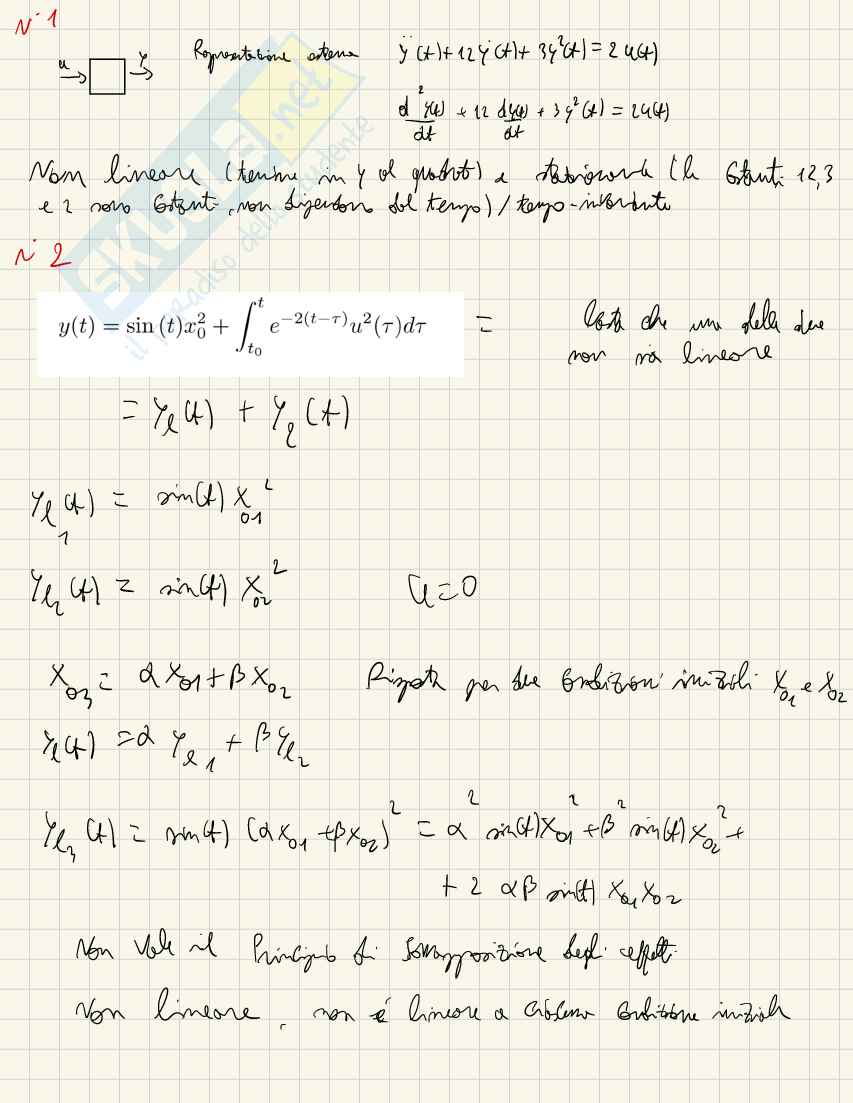 N°1
u y Rappresentazione esterna ÿ(t)+12ẏ(t)+3y²(t)=2u(t)
d²y(t)/dt + 12 dy(t)/dt + 3y²(t) = 2u(t)
Non lineare (termine in y al quadrato) e stazionaria (le costanti 12,3
e 2 sono costanti, non dipendono dal tempo)/tempo-invariante
N°2
y(t) = sin (t)x₀² + ∫_{t₀}^{t} e^{-2(t-τ)}u²(τ)dτ = Basta che una delle due
non sia lineare
= yₗ(t) + y (t)
yₗ₁(t) = sin(t) x₀₁²
yₗ₂(t) = sin(t) x₀₂² u=0
x₀₃ = αx₀₁+βx₀₂ Risposta per due condizioni iniziali x₀₁ e x₀₂
yₗ(t) = α yₗ₁ + β yₗ₂
yₗ₃(t) = sin(t) (αx₀₁+βx₀₂)² = α² sin(t)x₀₁²+β² sin(t)x₀₂² +
+ 2 αβ sin(t) x₀₁x₀₂
Non vale il Principio di sovrapposizione degli effetti
Non lineare, non è lineare a condizione iniziale
SKUOLA.net
il paradiso dello studente